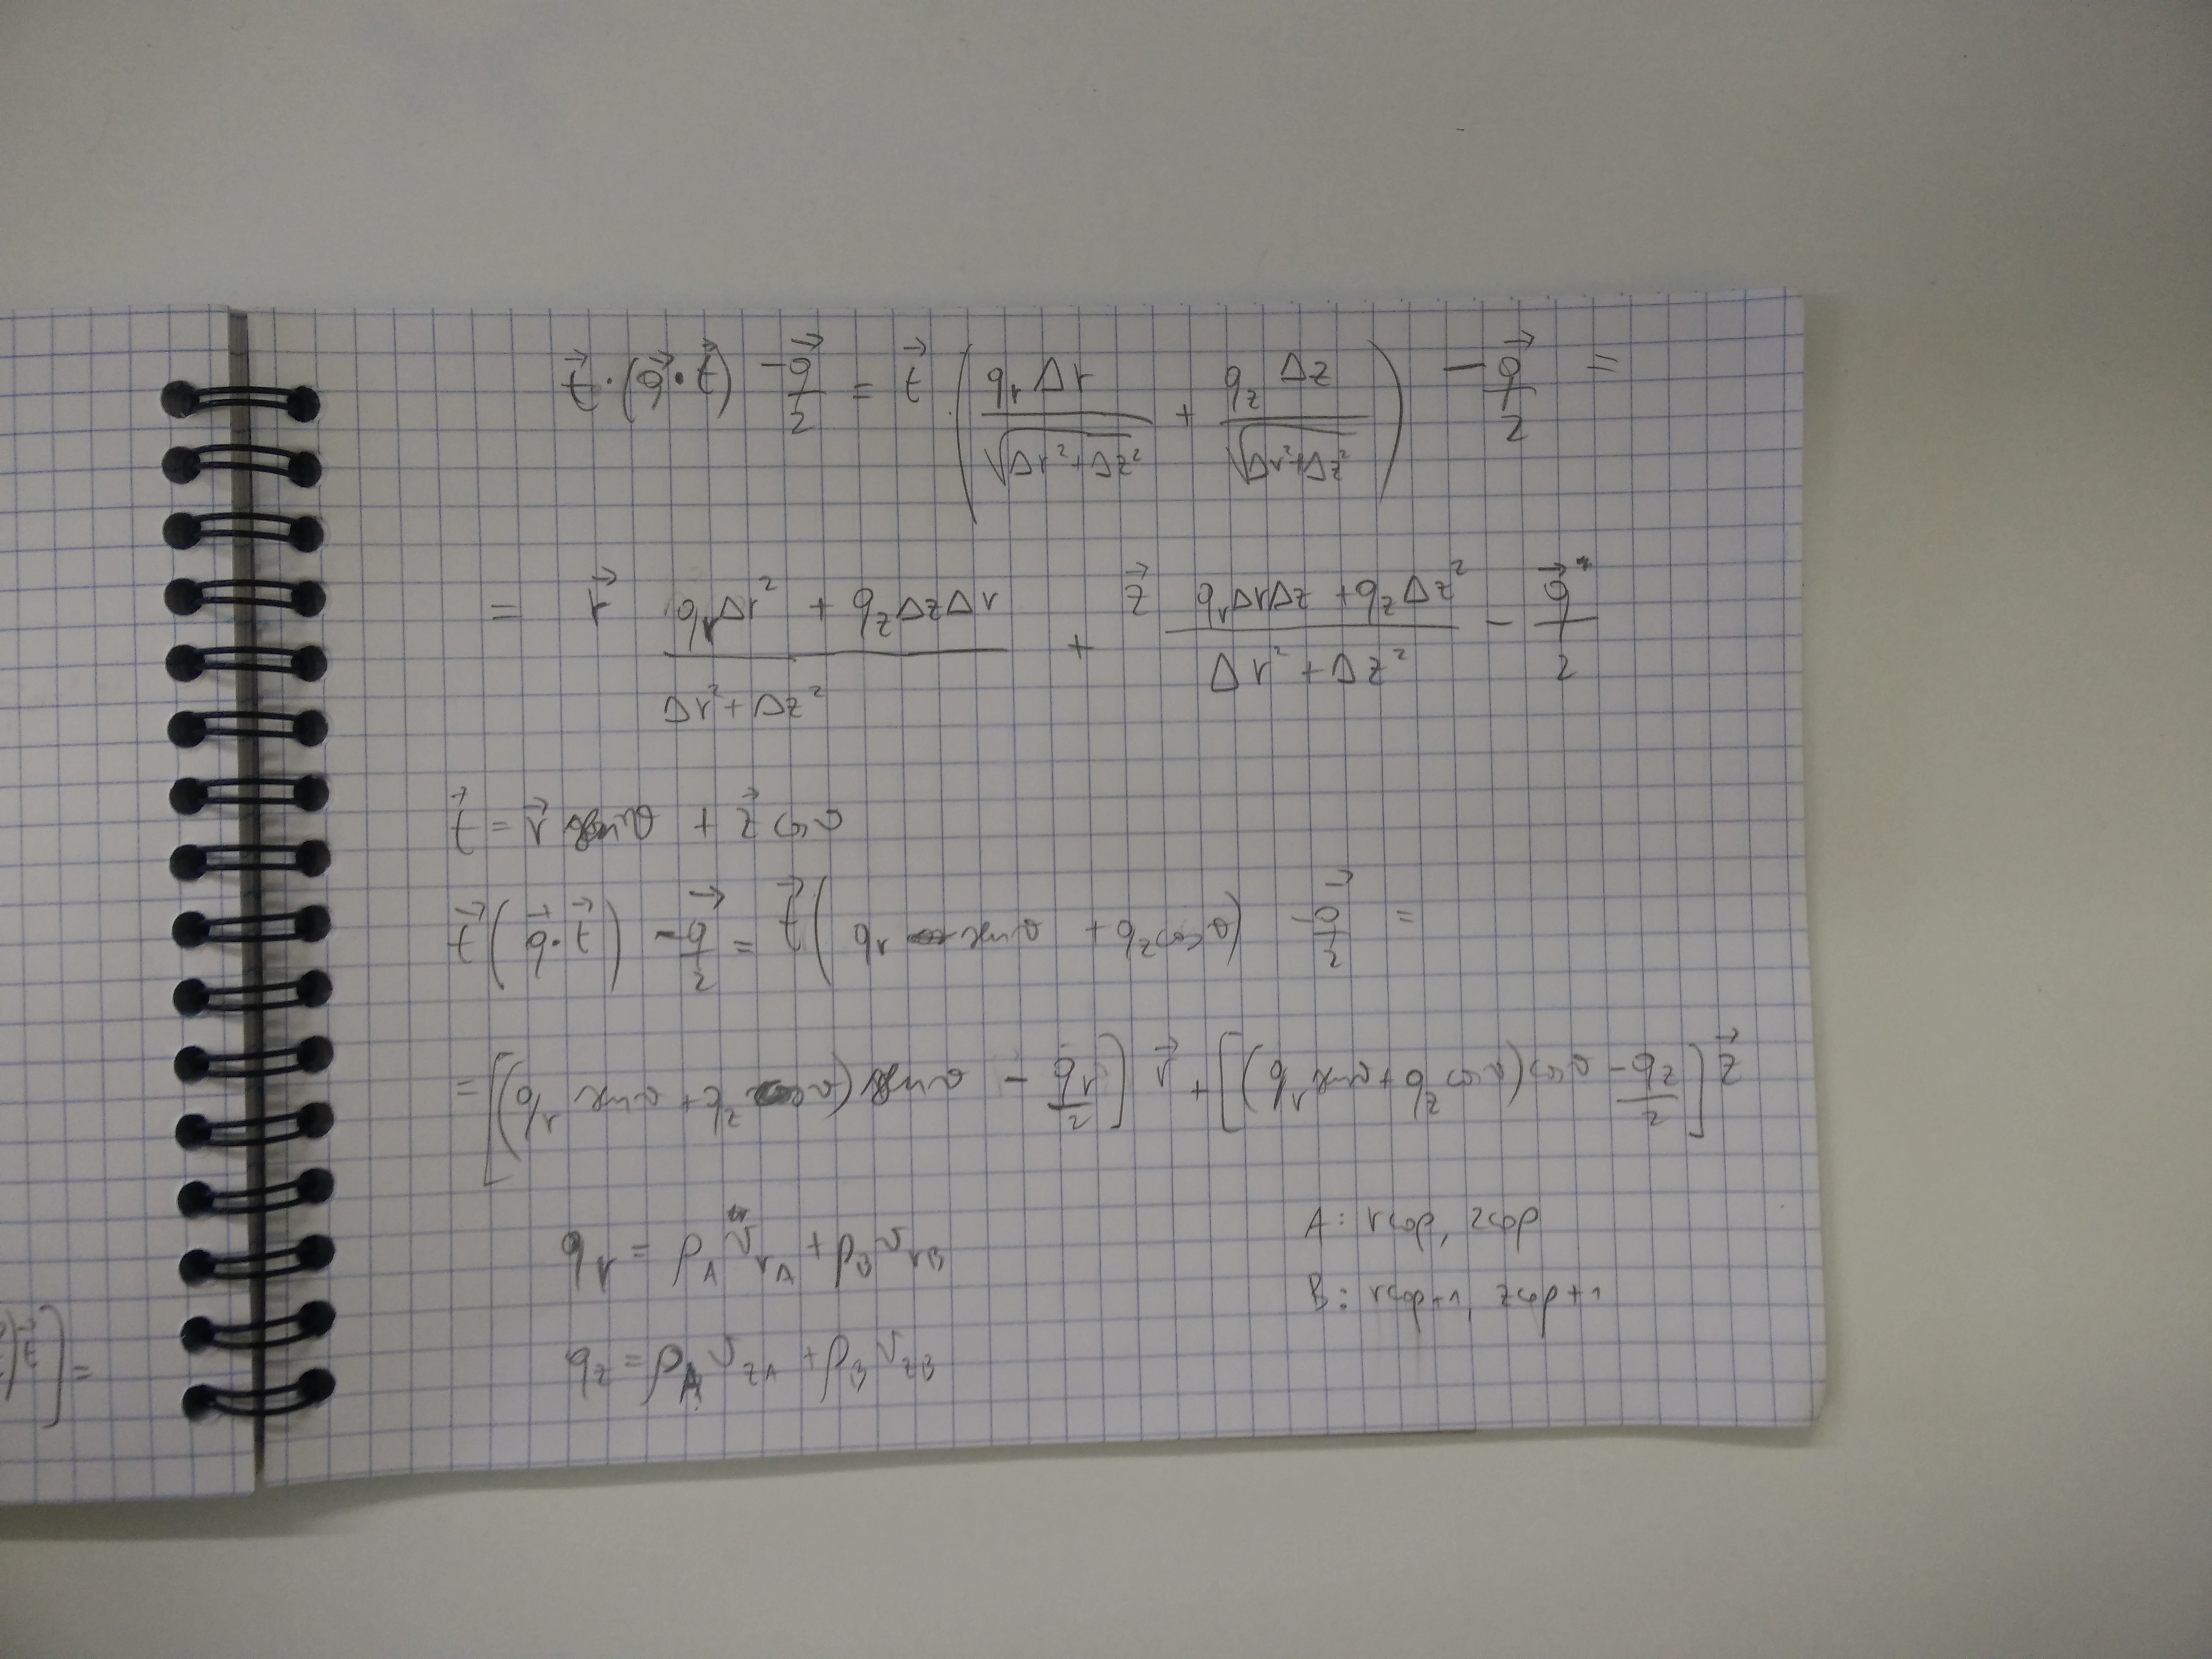 t⃗·(q⃗·t⃗) - q⃗/2 = t⃗ · (q_r Δr / √(Δr²+Δz²) + q_z Δz / √(Δr²+Δz²)) - q⃗/2 =
= r⃗ (q_r Δr² + q_z Δz Δr) / (Δr²+Δz²) + z⃗ (q_r Δr Δz + q_z Δz²) / (Δr²+Δz²) - q⃗/2
t⃗ = r⃗ sen θ + z⃗ cos θ
t⃗ (q⃗·t⃗) - q⃗/2 = t⃗ (q_r sen θ + q_z cos θ) - q⃗/2 =
= [(q_r sen θ + q_z cos θ) sen θ - q_r/2] r⃗ + [(q_r sen θ + q_z cos θ) cos θ - q_z/2] z⃗
q_r = ρ_A v_rA + ρ_B v_rB
q_z = ρ_A v_zA + ρ_B v_zB
A: rcop, zcop
B: rcop+1, zcop+1
) t⃗ ] =